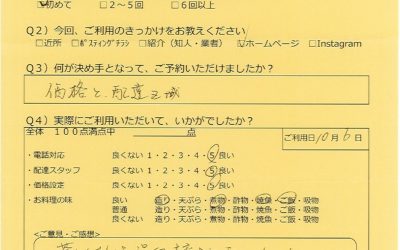 ☑初めて　□２～５回　□６回以上
Ｑ２）今回、ご利用のきっかけをお教えください
□近所　□ﾎﾟｽﾃｨﾝｸﾞﾁﾗｼ　□紹介（知人・業者）　☑ホームページ　□Instagram
Ｑ３）何が決め手となって、ご予約いただけましたか？
価格と、配達区域
Ｑ４）実際にご利用いただいて、いかがでしたか？
全体　１００点満点中　　　　点
ご利用日10月6日
・電話対応　良くない１・２・３・４・５良い
・配達スタッフ　良くない１・２・３・４・５良い
・価格設定　良くない１・２・３・４・５良い
・お料理の味　良い　造り・天ぷら・煮物・酢物・焼魚・ご飯・吸物
普通　造り・天ぷら・煮物・酢物・焼魚・ご飯・吸物
良くない　造り・天ぷら・煮物・酢物・焼魚・ご飯・吸物
＜ご意見・ご感想＞